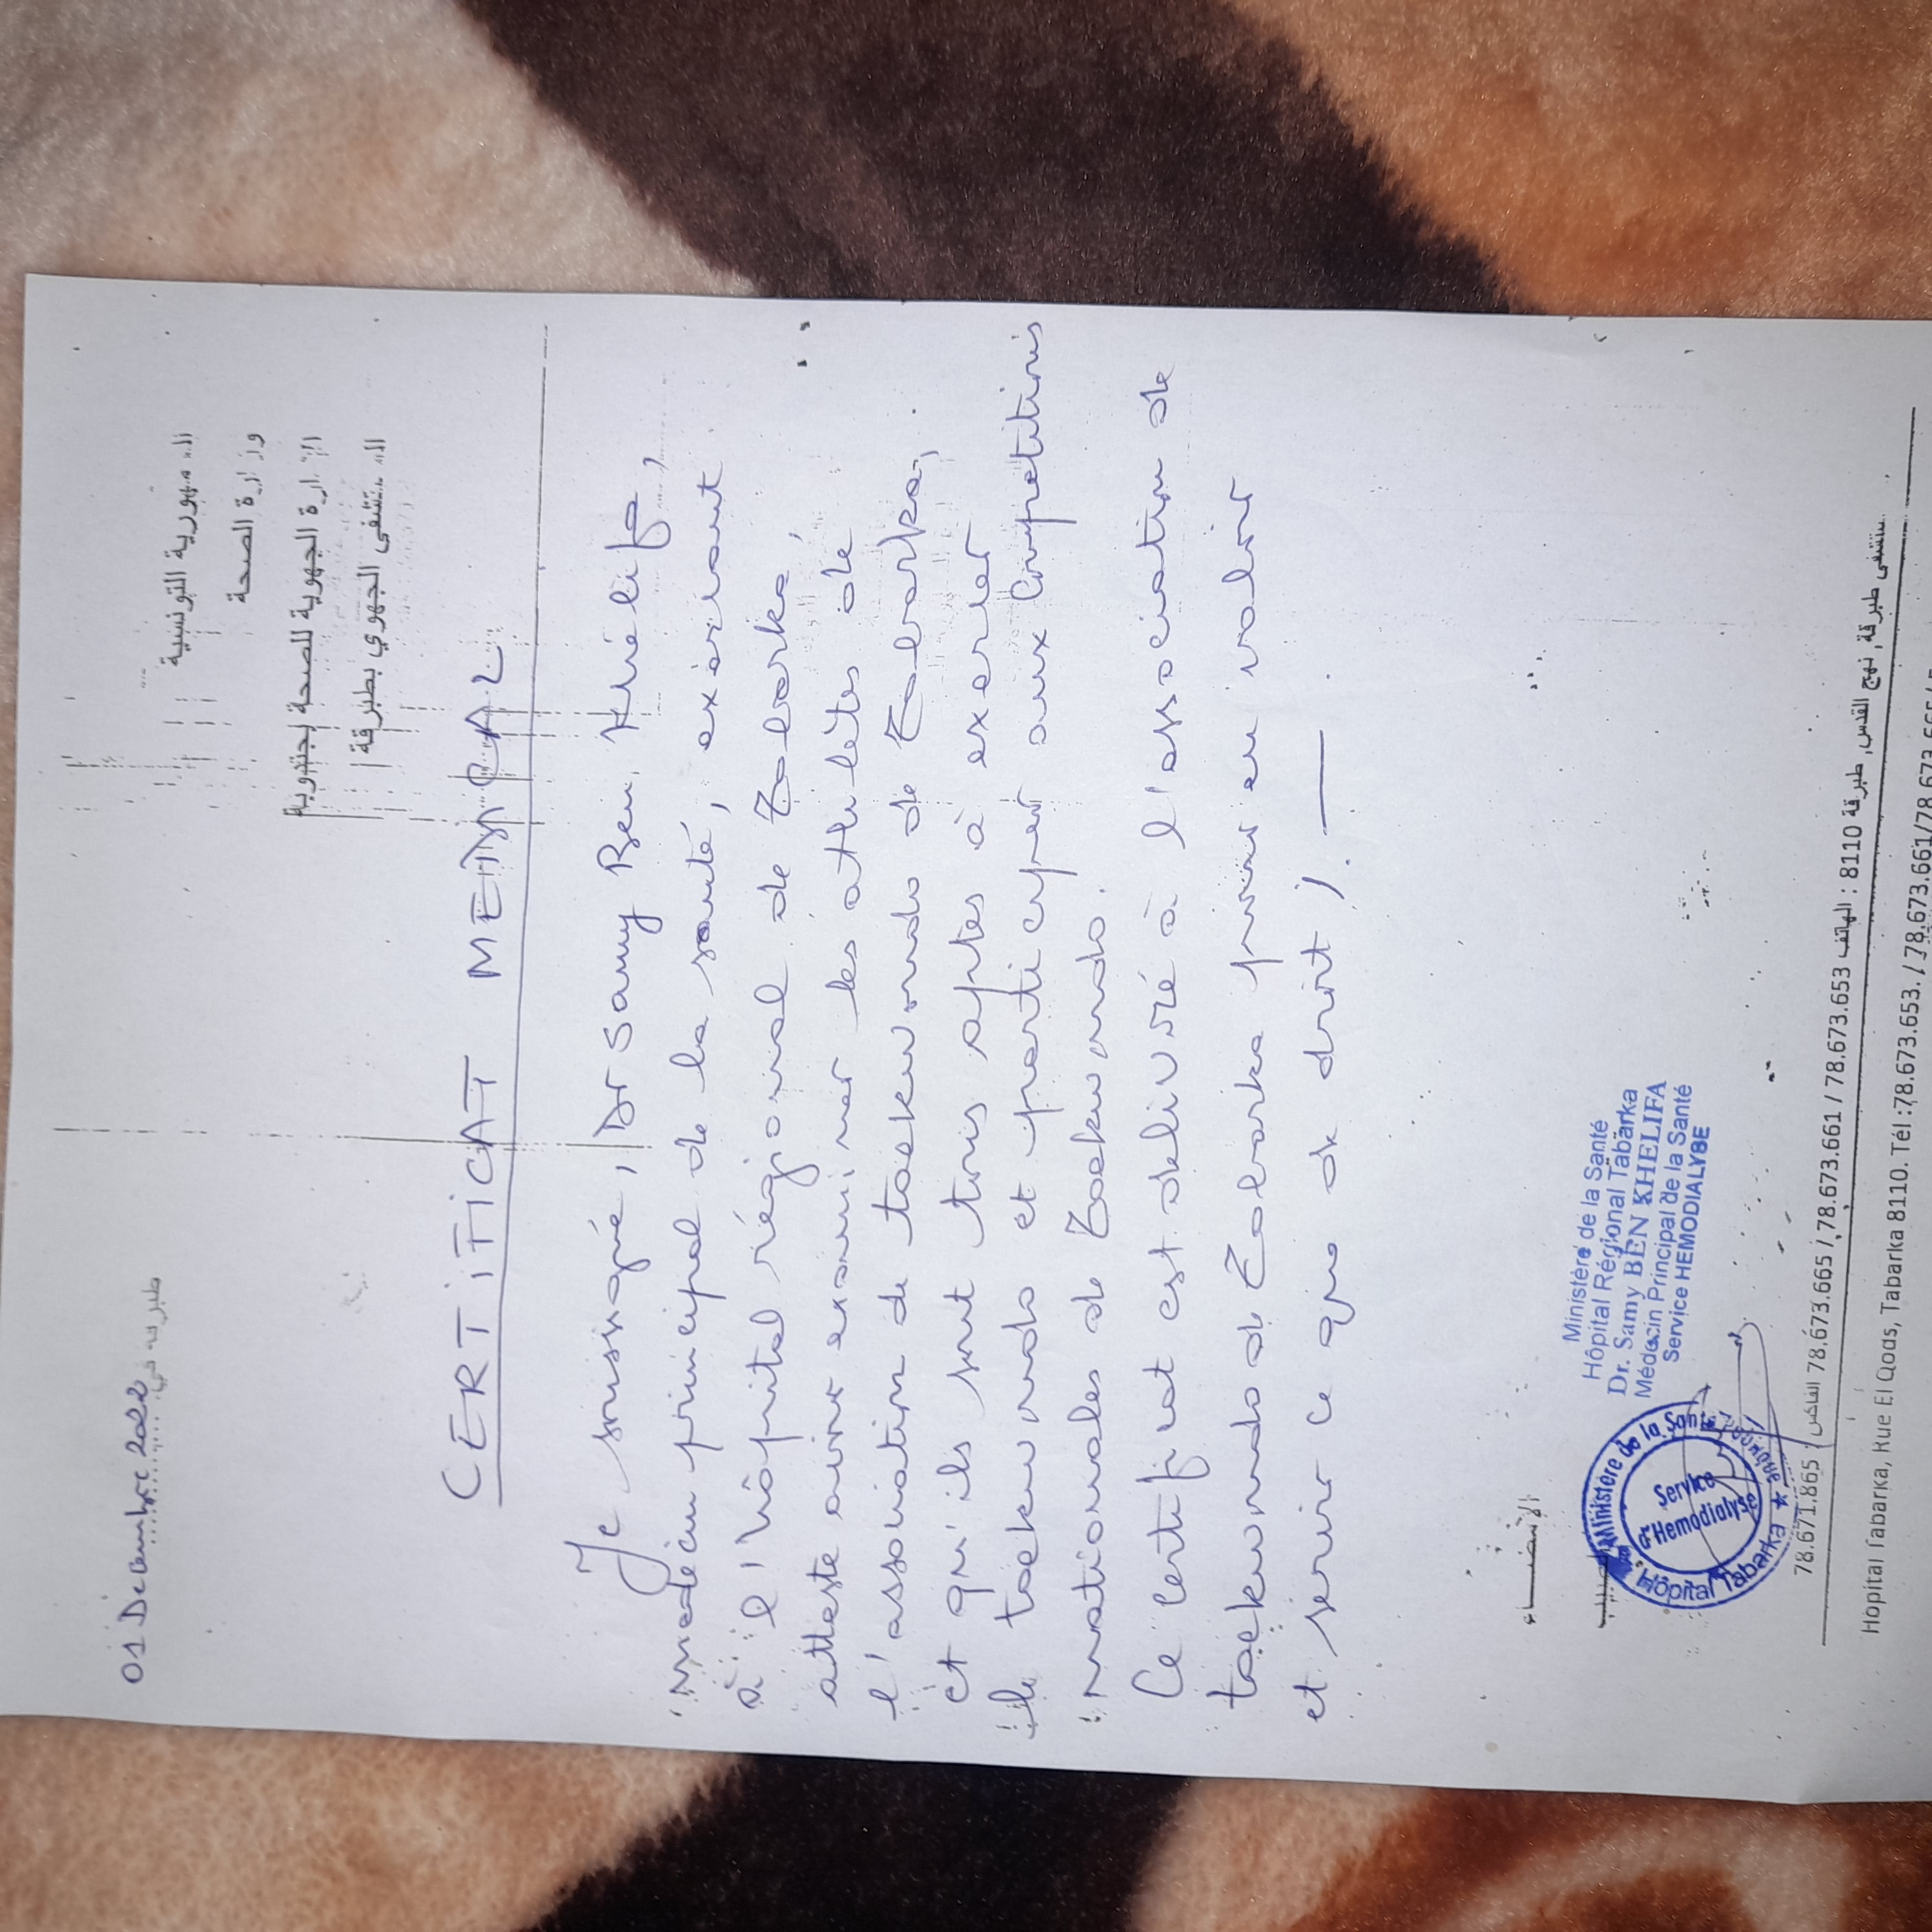 الجمهورية التونسية
وزارة الصحة
الإدارة الجهوية للصحة بجندوبة
المستشفى الجهوي بطبرقة
01 Decembre 2022
طبرقة في
CERTIFICAT MEDICAL
Je soussigné, Dr Samy Ben Khelifa,
medecin principal de la santé, exerçant
à l'hôpital régional de Tabarka,
atteste avoir examiner les athletes de
l'association de taekwondo de Tabarka,
et qu'ils sont tous aptes à exercer
le taekwondo et participer aux Competitions
nationales de Taekwondo.
Ce certificat est delivré à l'association de
taekwondo de Tabarka pour en valoir
et servir ce que de droit ).
الإمضاء
Ministère de la Santé
Hôpital Régional Tabarka
Dr. Samy BEN KHELIFA
Médecin Principal de la Santé
Service HEMODIALYSE
Ministère de la Santé
Service
Hemodialyse
Hôpital Tabarka ★
مستشفى طبرقة, نهج القدس, طبرقة 8110 : الهاتف 78.673.653 / 78.673.661 / 78.673.665 الفاكس : 78.671.865
Hopital Tabarka, Rue El Qods, Tabarka 8110. Tél :78.673.653. / 78.673.661/78.673.665